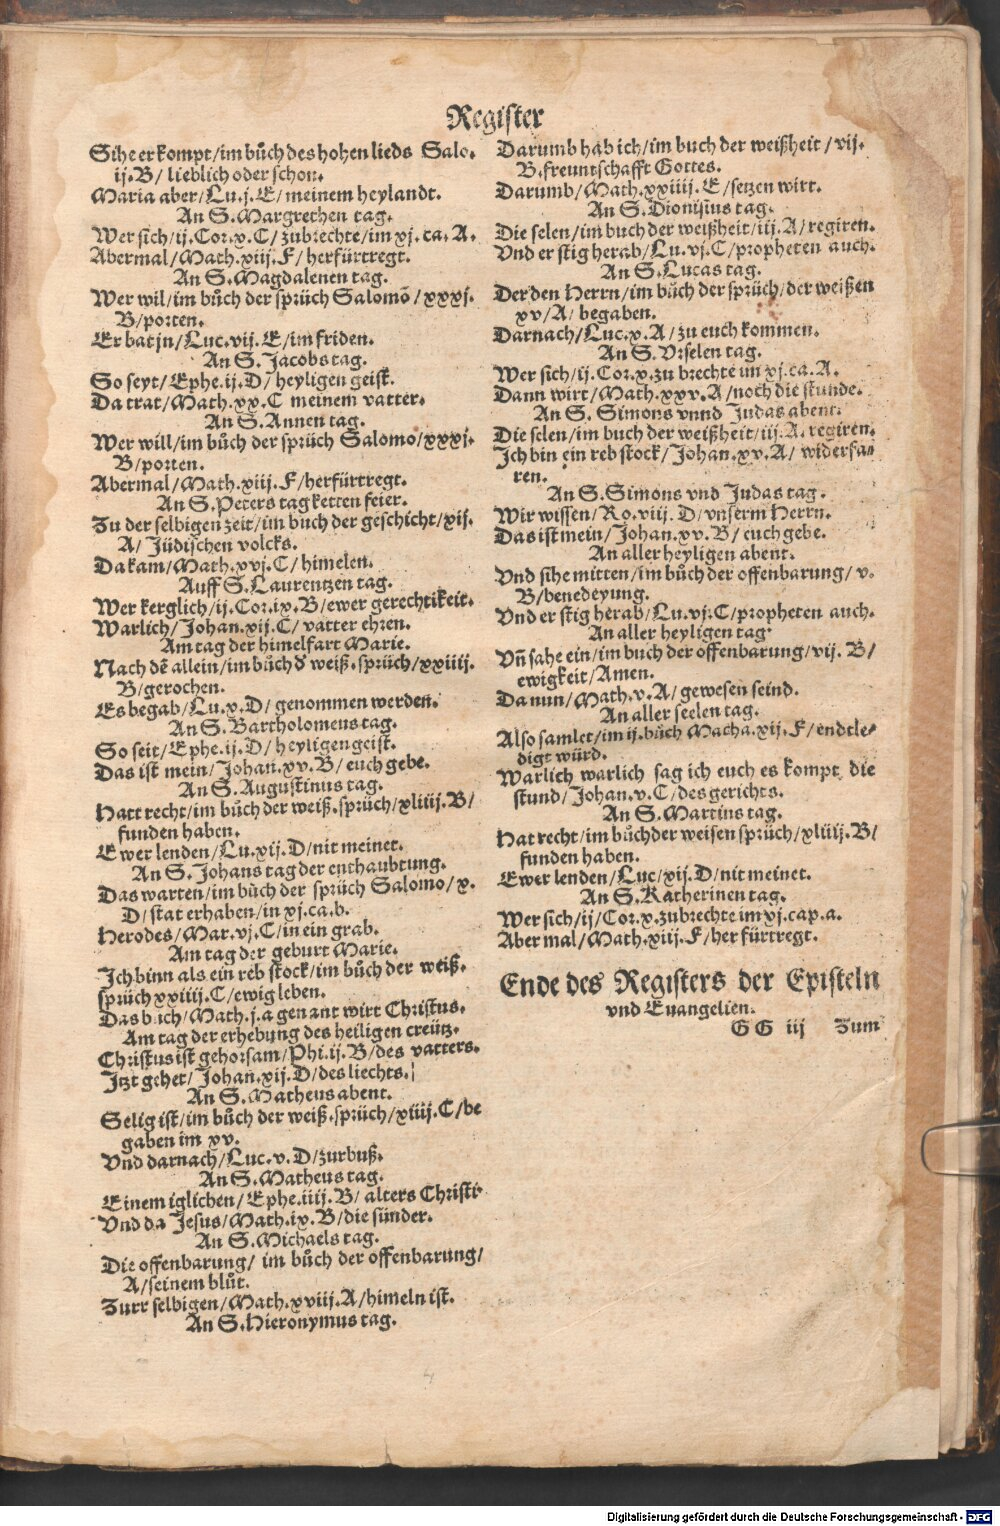 Register
Sihe er kompt/im bůch des hohen lieds Salo.
ij.B/ lieblich oder schon.
Maria aber/Lu.j.E/meinem heylandt.
An S.Margrethen tag.
Wer sich/ij.Cor.x.C/zubrechte/im xj.ca.A.
Abermal/Math.xiij.F/herfürtregt.
An S.Magdalenen tag.
Wer wil/im bůch der sprüch Salomõ/xxxj.
B/porten.
Er bat jn/Luc.vij.E/im friden.
An S.Jacobs tag.
So seyt/Ephe.ij.D/heyligen geist.
Da trat/Math.xx.C meinem vatter.
An S.Annen tag.
Wer will/im bůch der sprüch Salomo/xxxj.
B/porten.
Abermal/Math.xiij.F/herfürtregt.
An S.Peters tag ketten feier.
Zu der selbigen zeit/im buch der geschicht/xij.
A/Jüdischen volcks.
Da kam/Math.xvj.C/himelen.
Auff S.Laurentzen tag.
Wer kerglich/ij.Cor.ix.B/ewer gerechtikeit.
Warlich/Johan.xij.C/vatter ehren.
Am tag der himelfart Marie.
Nach dẽ allein/im bůch d' weiß.sprüch/xxiiij.
B/gerochen.
Es begab/Lu.x.D/genommen werden.
An S.Bartholomeus tag.
So seit/Ephe.ij.D/heyligen geist.
Das ist mein/Johan.xv.B/euch gebe.
An S.Augustinus tag.
Hatt recht/im bůch der weiß.sprüch/xliiij.B/
funden haben.
Ewer lenden/Lu.xij.D/nit meinet.
An S.Johans tag der enthaubtung.
Das warten/im bůch der sprüch Salomo/x.
D/stat erhaben/in xj.ca.b.
Herodes/Mar.vj.C/in ein grab.
Am tag der geburt Marie.
Ich binn als ein reb stock/im bůch der weiß.
sprüch xxiiij.C/ewig leben.
Das buch/Math.j.a genant wirt Christus.
Am tag der erhebung des heiligen creütz.
Christus ist gehorsam/Phi.ij.B/des vatters.
Jtzt gehet/Johan.xij.D/des liechts.
An S.Matheus abent.
Selig ist/im bůch der weiß.sprüch/xiiij.C/be
gaben im xv.
Vnd darnach/Luc.v.D/zur buß.
An S.Matheus tag.
Einem iglichen/Ephe.iiij.B/alters Christi
Vnd da Jesus/Math.ix.B/die sünder.
An S.Michaels tag.
Die offenbarung/ im bůch der offenbarung/
A/seinem blůt.
Zurr selbigen/Math.xviij.A/himeln ist.
An S.Hieronymus tag.
Darumb hab ich/im buch der weißheit/vij.
B.freuntschafft Gottes.
Darumb/Math.xxiiij.E/setzen wirt.
An S.Dionisius tag.
Die selen/im buch der weißheit/iij.A/regiren.
Vnd er stig herab/Lu.vj.C/propheten auch.
An S.Lucas tag.
Der den Herrn/im bůch der sprüch/der weißen
xv/A/ begaben.
Darnach/Luc.x.A/zu euch kommen.
An S.Vrselen tag.
Wer sich/ij.Cor.x.zu brechte im xj.ca.A.
Dann wirt/Math.xxv.A/noch die stunde.
An S. Simons vnnd Judas abent.
Die selen/im buch der weißheit/iij.A.regiren.
Ich bin ein reb stock/Johan.xv.A/ widersa-
ren.
An S.Simons vnd Judas tag.
Wir wissen/Ro.viij.D/vnserm Herrn.
Das ist mein/Johan.xv.B/euch gebe.
An aller heyligen abent.
Vnd sihe mitten/im bůch der offenbarung/v.
B/benedeyung.
Vnd er stig herab/Lu.vj.C/propheten auch.
An aller heyligen tag.
Vñ sahe ein/im buch der offenbarung/vij.B/
ewigkeit/Amen.
Da nun/Math.v.A/gewesen seind.
An aller seelen tag.
Also samlet/im ij.bůch Macha.xij.F/endtle-
digt würd.
Warlich warlich sag ich euch es kompt die
stund/Johan.v.C/des gerichts.
An S.Martins tag.
Hat recht/im bůch der weisen sprüch/xliiij.B/
funden haben.
Ewer lenden/Luc/xij.D/nit meinet.
An S.Katherinen tag.
Wer sich/ij/Cor.x.zubrechte im xj.cap.a.
Aber mal/Math.xiij.F/her fürtregt.
Ende des Registers der Episteln
vnd Euangelien.
GG iij Zum
Digitalisierung gefördert durch die Deutsche Forschungsgemeinschaft - DFG